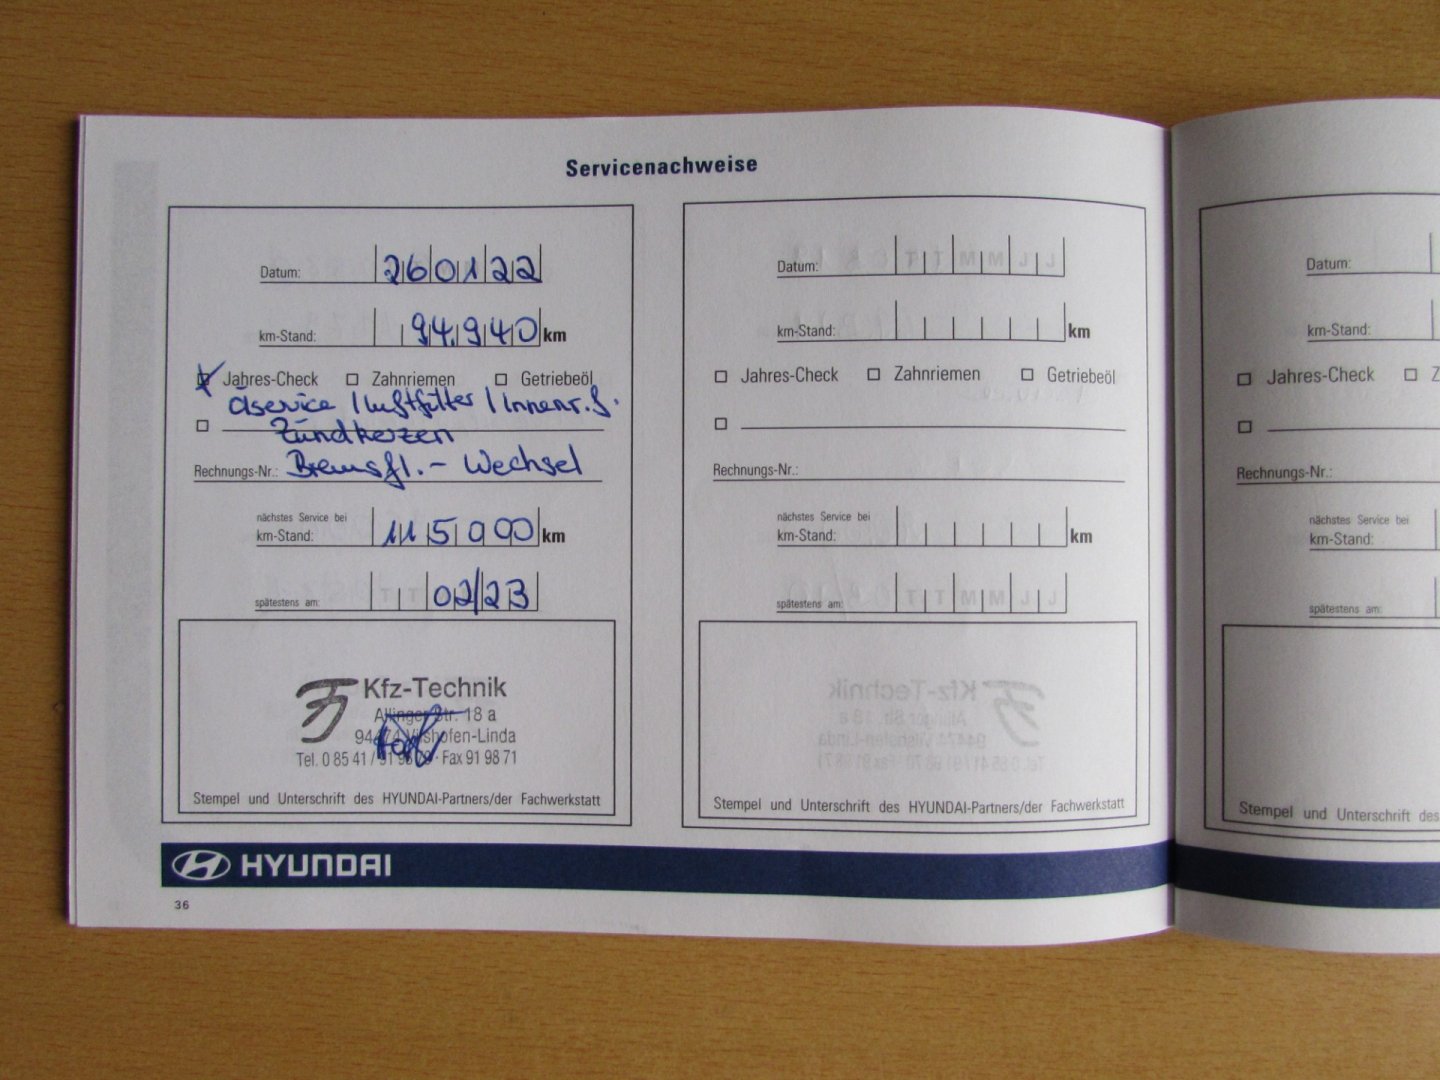 Servicenachweise
Datum: 26 01 22
km-Stand: 94.940 km
Jahres-Check Zahnriemen Getriebeöl
Ölservice / Luftfilter / Innenr.f.
Zündkerzen
Rechnungs-Nr.: Bremsfl.- Wechsel
nächstes Service bei
km-Stand: 115000 km
spätestens am: 02/23
Kfz-Technik
Allinger Str. 18 a
94474 Vilshofen-Linda
Tel. 0 85 41 / 91 98 70 · Fax 91 98 71
Stempel und Unterschrift des HYUNDAI-Partners/der Fachwerkstatt
Datum:
km-Stand: km
Jahres-Check Zahnriemen Getriebeöl
Rechnungs-Nr.:
nächstes Service bei
km-Stand: km
spätestens am:
Stempel und Unterschrift des HYUNDAI-Partners/der Fachwerkstatt
HYUNDAI
36
Datum:
km-Stand:
Jahres-Check Z
Rechnungs-Nr.:
nächstes Service bei
km-Stand:
spätestens am:
Stempel und Unterschrift des